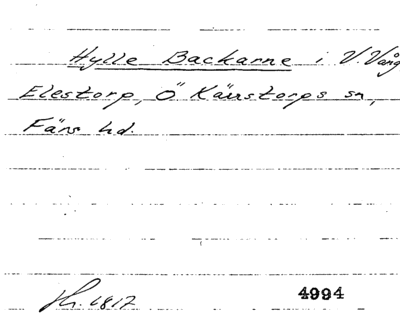 Hylle Backarne i V. Vång
Elestorp, Ö Kärrstorps sn,
Färs hd.
4994